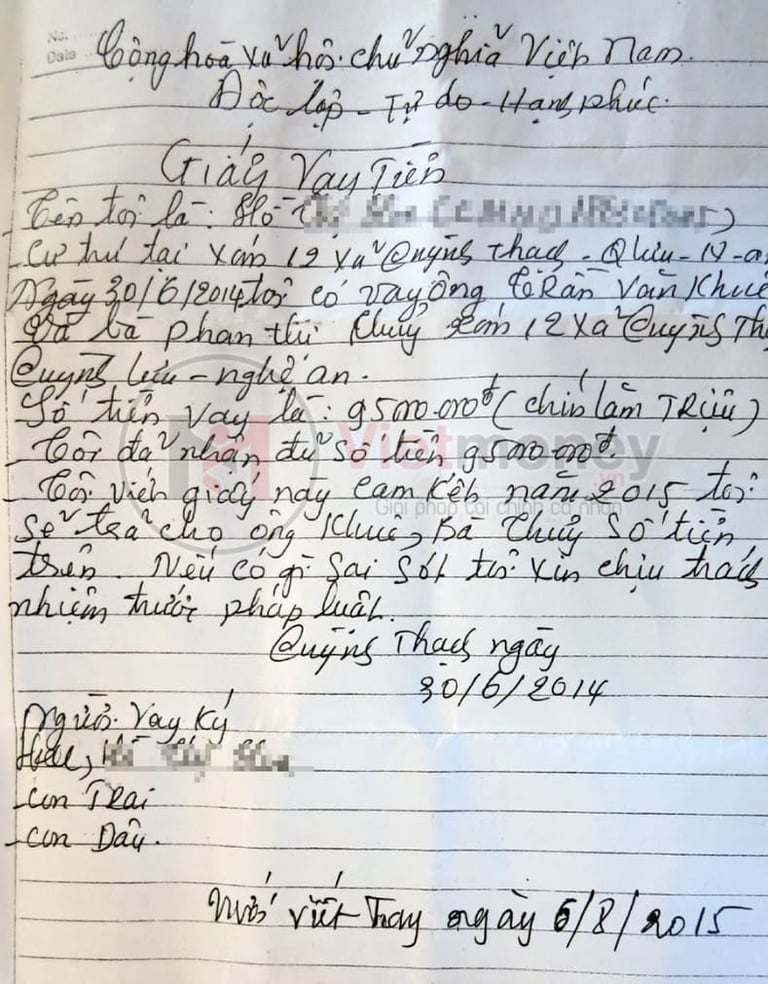 No.
Date
Cộng hoà xã hội chủ nghĩa Việt Nam.
Độc lập - Tự do - Hạnh phúc.
Giấy Vay Tiền
- Tên tôi là: Hồ
- Cư trú tại Xóm 12 xã Quỳnh Thạch - Q lưu - N-an
Ngày 30/6/2014 tôi có vay ông Trần Văn Khuê
Và bà phan thị Thuỷ xóm 12 xã Quỳnh Th
Quỳnh lưu - nghệ an.
Số tiền vay là: 95000.000đ (chín lăm TRiệu)
- Tôi đã nhận đủ số tiền 95000.000đ.
- Tôi viết giấy này cam kết năm 2015 tôi
sẽ trả cho ông Khuê, Bà Thuỷ số tiền
trên. Nếu có gì sai sót tôi xin chịu trách
nhiệm trước pháp luật.
Quỳnh Thạch ngày
30/6/2014
Người Vay Ký
- con Trai
- con Dâu.
viết Thay ngày 6/8/2015
Vietmoney
.vn
Giải pháp tài chính cá nhân